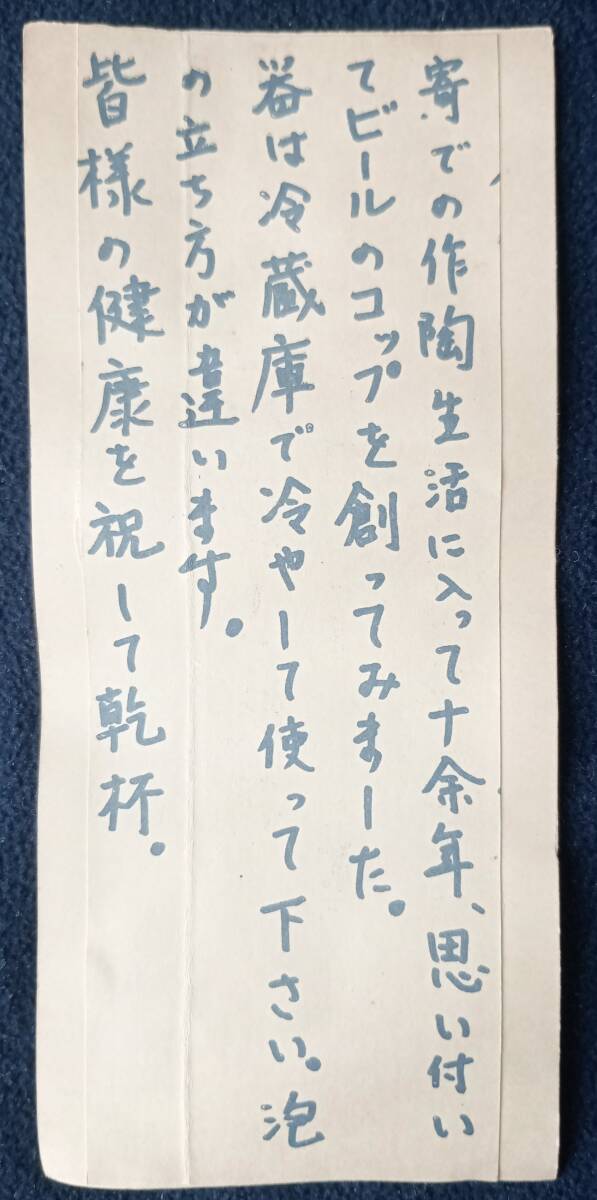 寄での作陶生活に入って十余年、思い付い
てビールのコップを創ってみました。
器は冷蔵庫で冷やして使って下さい。泡
の立ち方が違います。
皆様の健康を祝して乾杯。